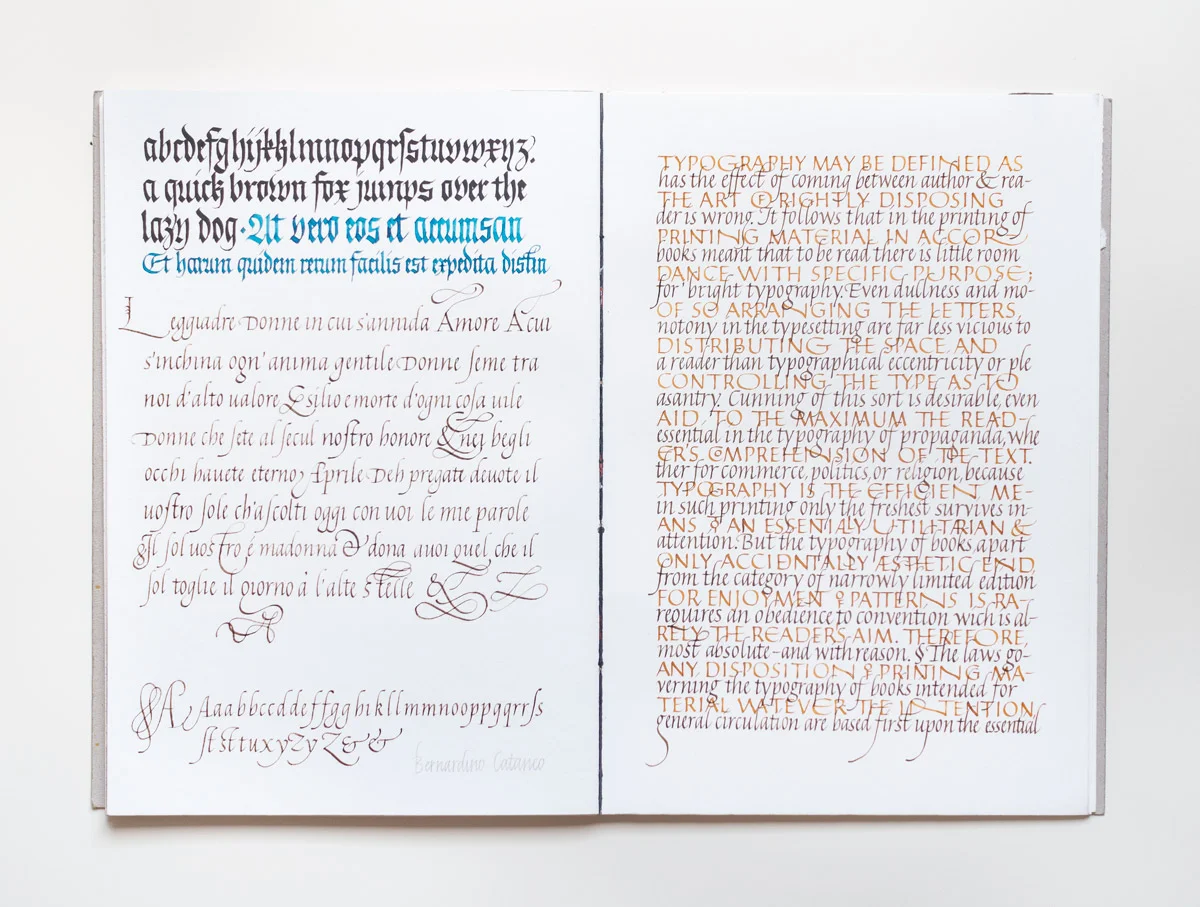 abcdefghijklmnopqrſstuvwxyz.
a quick brown fox jumps over the
lazy dog·At vero eos et accumsan
Et harum quidem rerum facilis est expedita distin
Leggiadre Donne in cui s'annida Amore A cui
s'inchina ogn' anima gentile Donne ſeme tra
noi d'alto ualore Esilio e morte d'ogni coſa uile
Donne che ſete al ſecul noſtro honore & nei begli
occhi hauete eterno Aprile Deh pregate deuote il
uoſtro ſole ch'aſcolti oggi con uoi le mie parole
Il ſol uostro é madonna & dona a uoi quel che il
ſol toglie il giorno à l'alte stelle
A Aaabbccddeffgghikllmmnooppgqrrſs
ſtſttuxyZyZ&&
Bernardino Cataneo
TYPOGRAPHY MAY BE DEFINED AS
has the effect of coming between author & rea-
THE ART OF RIGHTLY DISPOSING
der is wrong. It follows that in the printing of
PRINTING MATERIAL IN ACCOR
books meant that to be read there is little room
DANCE WITH SPECIFIC PURPOSE;
for bright typography. Even dullness and mo-
OF SO ARRANGING THE LETTERS,
notony in the typesetting are far less vicious to
DISTRIBUTING THE SPACE AND
a reader than typographical eccentricity or ple
CONTROLLING THE TYPE AS TO
asantry. Cunning of this sort is desirable, even
AID TO THE MAXIMUM THE READ-
essential in the typography of propaganda, whe
ER'S COMPREHENSION OF THE TEXT.
ther for commerce, politics, or religion, because
TYPOGRAPHY IS THE EFFICIENT ME-
in such printing only the freshest survives in-
ANS OF AN ESSENIALLY UTILITARIAN &
attention. But the typography of books, apart
ONLY ACCIDNTALLY ÆSTHETIC END,
from the category of narrowly limited edition
FOR ENJOYMENT OF PATTERNS IS RA-
requires an obedience to convention wich is al-
RELY THE READERS AIM. THEREFORE,
most absolute-and with reason. § The laws go-
ANY DISPOSITION OF PRINTING MA-
verning the typography of books intended for
TERIAL WATEVER THE INTENTION,
general circulation are based first upon the essential